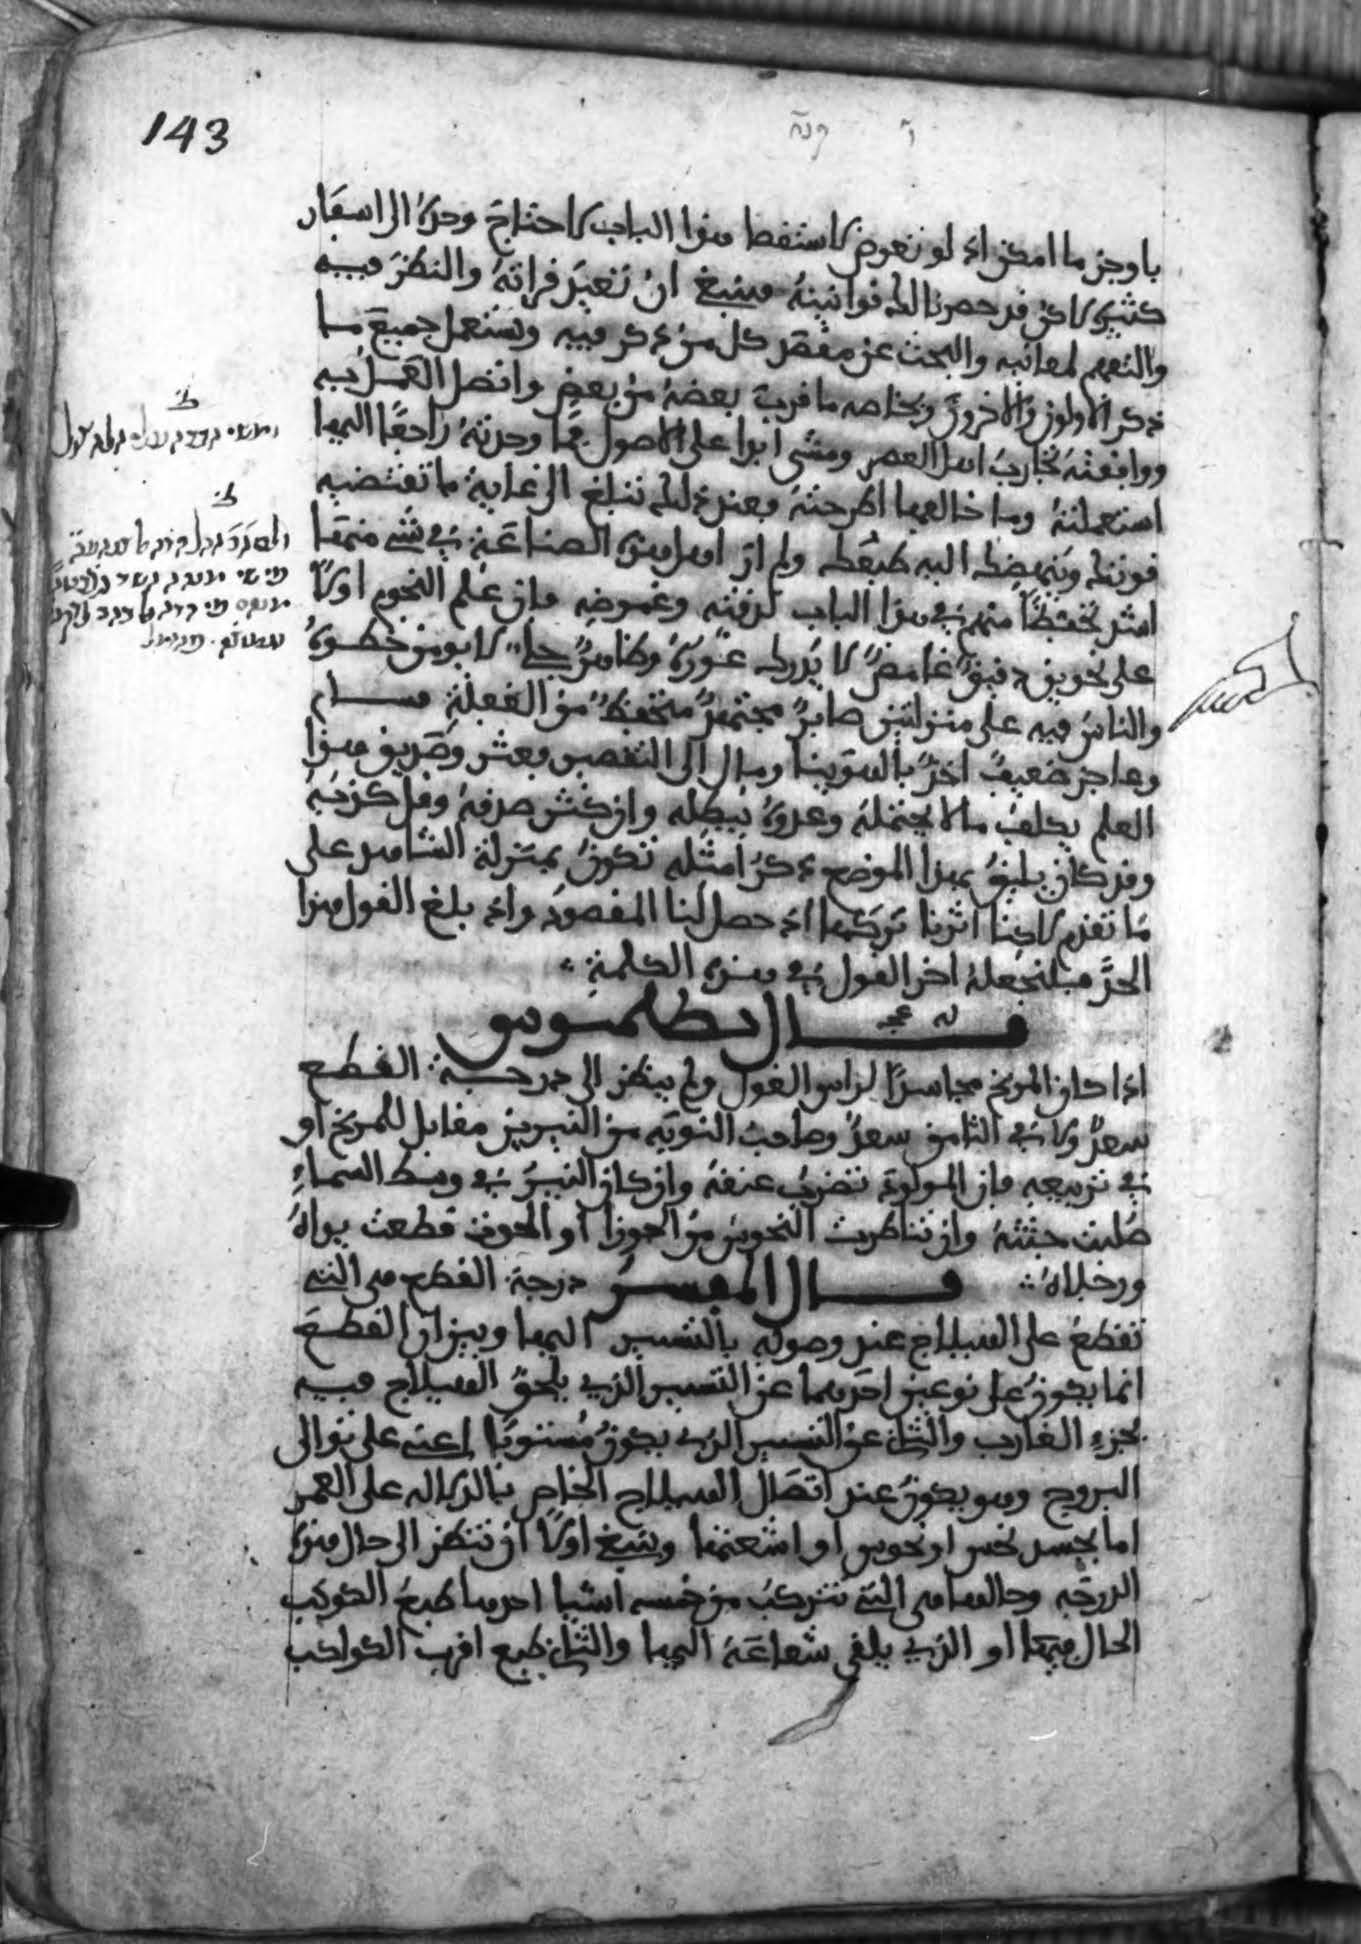 143
باوجز ما امكن اذ لو تعرض لاستقصا هذا الباب لاحتاج وحده الى اسفار
كثيرة لاكن قد حصرنا لك قوانينه فينبغي ان تعيد قراته والنظر فيه
والتفهم لمعانيه والبحث عن مقصد كل من ذكر فيه وتستعمل جميع ما
ذكر الاولون والاخرون وبخاصه ما قرب بعضه من بعض وافضل العمل به
ووافقته تجارب اهل العصر ومشى ابدا على الاصول فما وجدته راجعا اليها
استعملته وما خالفها اطرحته فعند ذلك تبلغ الى غاية ما تقتضيه
قوتك وينهضك اليه طبعك ولم ار اهل هذه الصناعة في شي منها
اشد تخبطا منهم في هذا الباب لدقته وغموضه فان علم النجوم اولا
على نحوين دقيق غامض لا يدرك غوره وظاهر جلي لا يومن خطوه
والناس فيه على منزلتين صابر مجتهد متحفظ من الغفلة فسلم
وعاجز ضعيف اخذ بالهوينا ومال الى التقصير فعثر وصديق هذا
العلم يكلف ما لا يحتمله وعدوه يبطله وان كثر صدقه وقل كذبه
وقد كان يليق بهذا الموضع ذكر امثله تكون بمنزلة الشاهد على
ما تقدم لاكننا اثرنا تركها اذ حصل لنا المقصود واذ بلغ القول هذا
الحد فلنجعله اخر القول في هذه الكلمة
قال بطلميوس
اذا كان المريخ مجاسدا لراس الغول ولم ينظر الى درجة القطع
سعد ولا في الثامن سعد وصاحب النوبه من النيرين مقابل للمريخ او
في تربيعه فان المولود تضرب عنقه وان كان النير في وسط السماء
صلبت جثته وان تناظرت النحوس من الجوزا او الحوت قطعت يداه
ورجلاه قال المفسر درجة القطع هى التي
تقطع على الهيلاج عند وصوله بالتسيير اليها وبين ان القطع
انما يكون على نوعين احدهما عن التسيير الذي يلحق الهيلاج فيه
بجزء الغارب والثاني عن التسيير الذي يكون مستويا اعني على توالى
البروج وهو يكون عند اتصال الهيلاج الخاص بالدلاله على العمر
اما بجسد نحس او نحوس او اشعتها وينبغي اولا ان تنظر الى حال هذه
الدرجه وحالها هى التي تتركب من خمسه اشيا احدها طبع الكوكب
الحال فيها او الذي يلقى شعاعه اليها والثاني طبع اقرب الكواكب